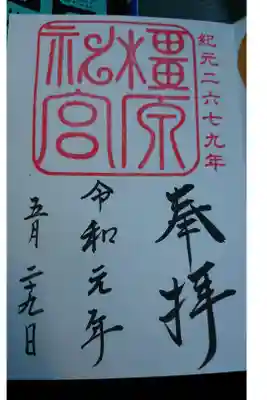 紀元二六七九年
橿原
神宮
奉拝
令和元年
五月二十九日